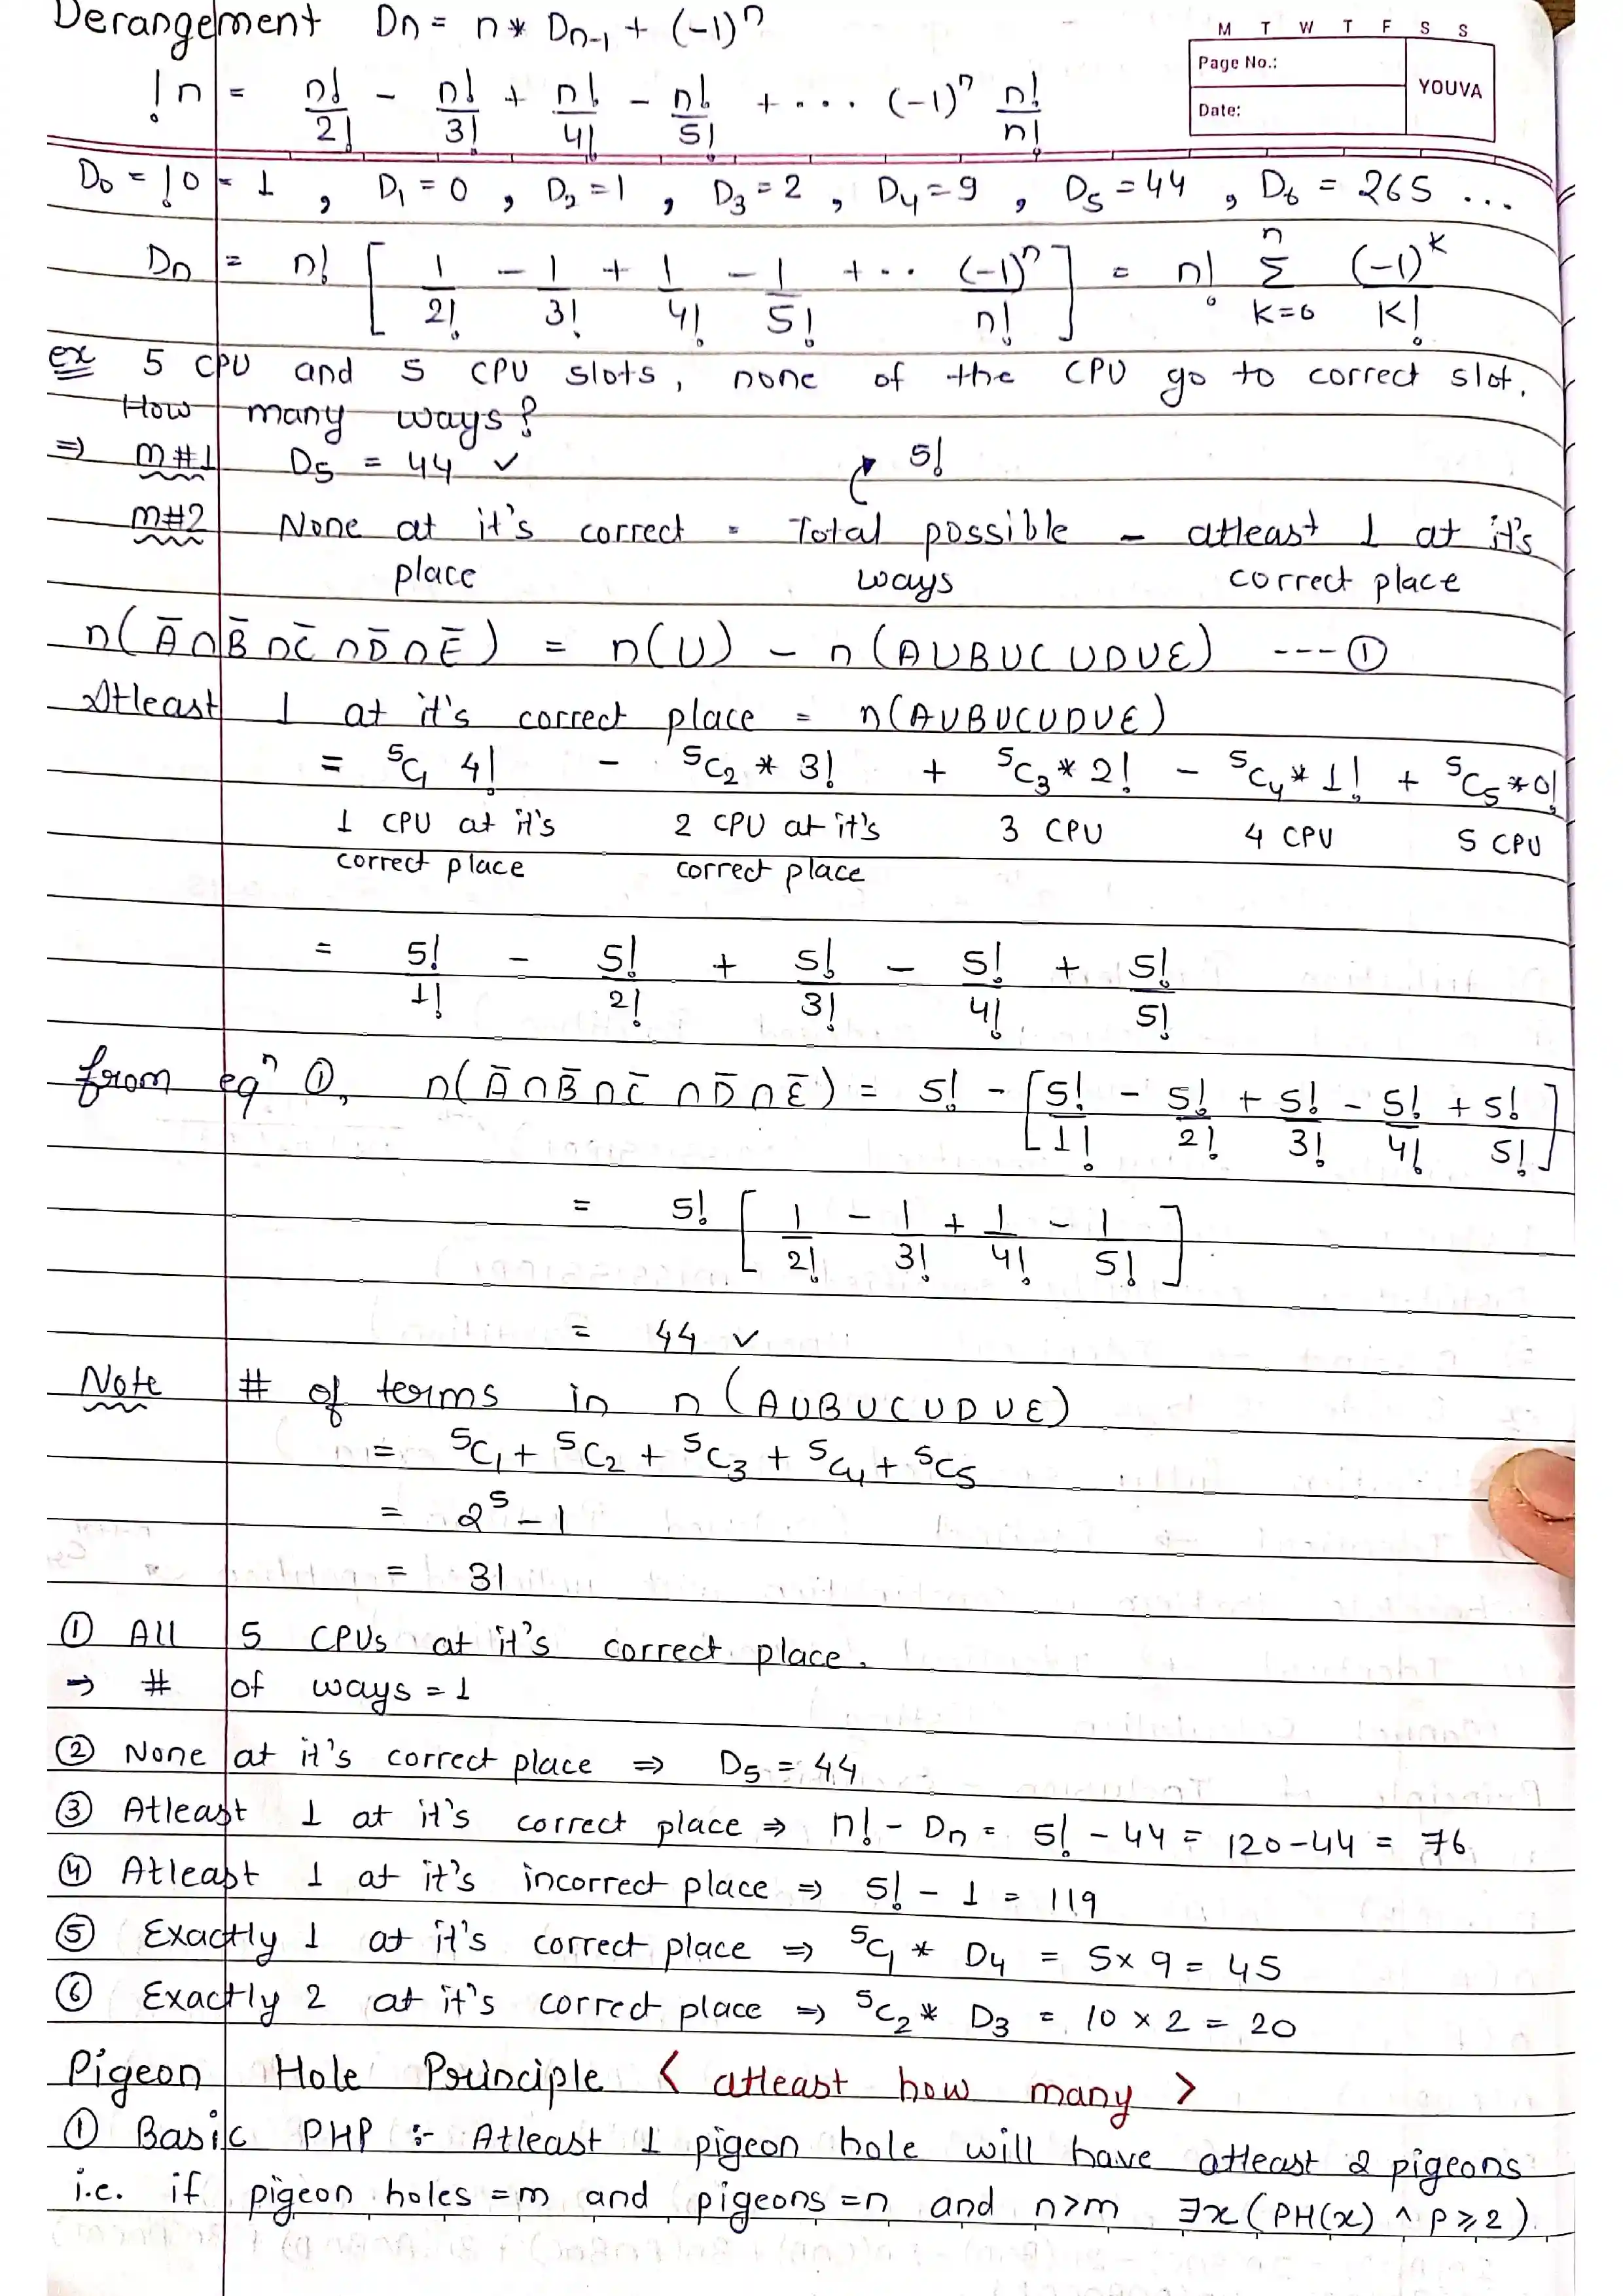 Derangement Dn = n * Dn-1 + (-1)^n
M T W T F S S
Page No.:
YOUVA
Date:
!n = n!/2! - n!/3! + n!/4! - n!/5! + ... (-1)^n n!/n!
D0 = !0 = 1 , D1 = 0 , D2 = 1 , D3 = 2 , D4 = 9 , D5 = 44 , D6 = 265 ...
Dn = n! [ 1/2! - 1/3! + 1/4! - 1/5! + .. (-1)^n/n! ] = n! Σ(k=0 to n) (-1)^k/K!
ex 5 CPU and 5 CPU slots, none of the CPU go to correct slot.
How many ways?
⇒ m#1 D5 = 44 ✓
5!
m#2 None at it's correct = Total possible - atleast 1 at it's
place ways correct place
n(A̅∩B̅∩C̅∩D̅∩E̅) = n(U) - n(AUBUCUDUE) ---①
Atleast 1 at it's correct place = n(AUBUCUDUE)
= ⁵C₁ 4! - ⁵C₂ * 3! + ⁵C₃ * 2! - ⁵C₄ * 1! + ⁵C₅ * 0!
1 CPU at it's 2 CPU at it's 3 CPU 4 CPU 5 CPU
correct place correct place
= 5!/1! - 5!/2! + 5!/3! - 5!/4! + 5!/5!
from eqⁿ ①, n(A̅∩B̅∩C̅∩D̅∩E̅) = 5! - [5!/1! - 5!/2! + 5!/3! - 5!/4! + 5!/5!]
= 5! [ 1/2! - 1/3! + 1/4! - 1/5! ]
= 44 ✓
Note # of terms in n(AUBUCUDUE)
= ⁵C₁ + ⁵C₂ + ⁵C₃ + ⁵C₄ + ⁵C₅
= 2⁵ - 1
= 31
① All 5 CPUs at it's correct place.
→ # of ways = 1
② None at it's correct place ⇒ D5 = 44
③ Atleast 1 at it's correct place ⇒ n! - Dn = 5! - 44 = 120-44 = 76
④ Atleast 1 at it's incorrect place ⇒ 5! - 1 = 119
⑤ Exactly 1 at it's correct place ⇒ ⁵C₁ * D4 = 5x9 = 45
⑥ Exactly 2 at it's correct place ⇒ ⁵C₂ * D3 = 10 x 2 = 20
Pigeon Hole Principle < atleast how many >
① Basic PHP :- Atleast 1 pigeon hole will have atleast 2 pigeons
i.e. if pigeon holes = m and pigeons = n and n>m ∃x(PH(x) ^ P⩾2).